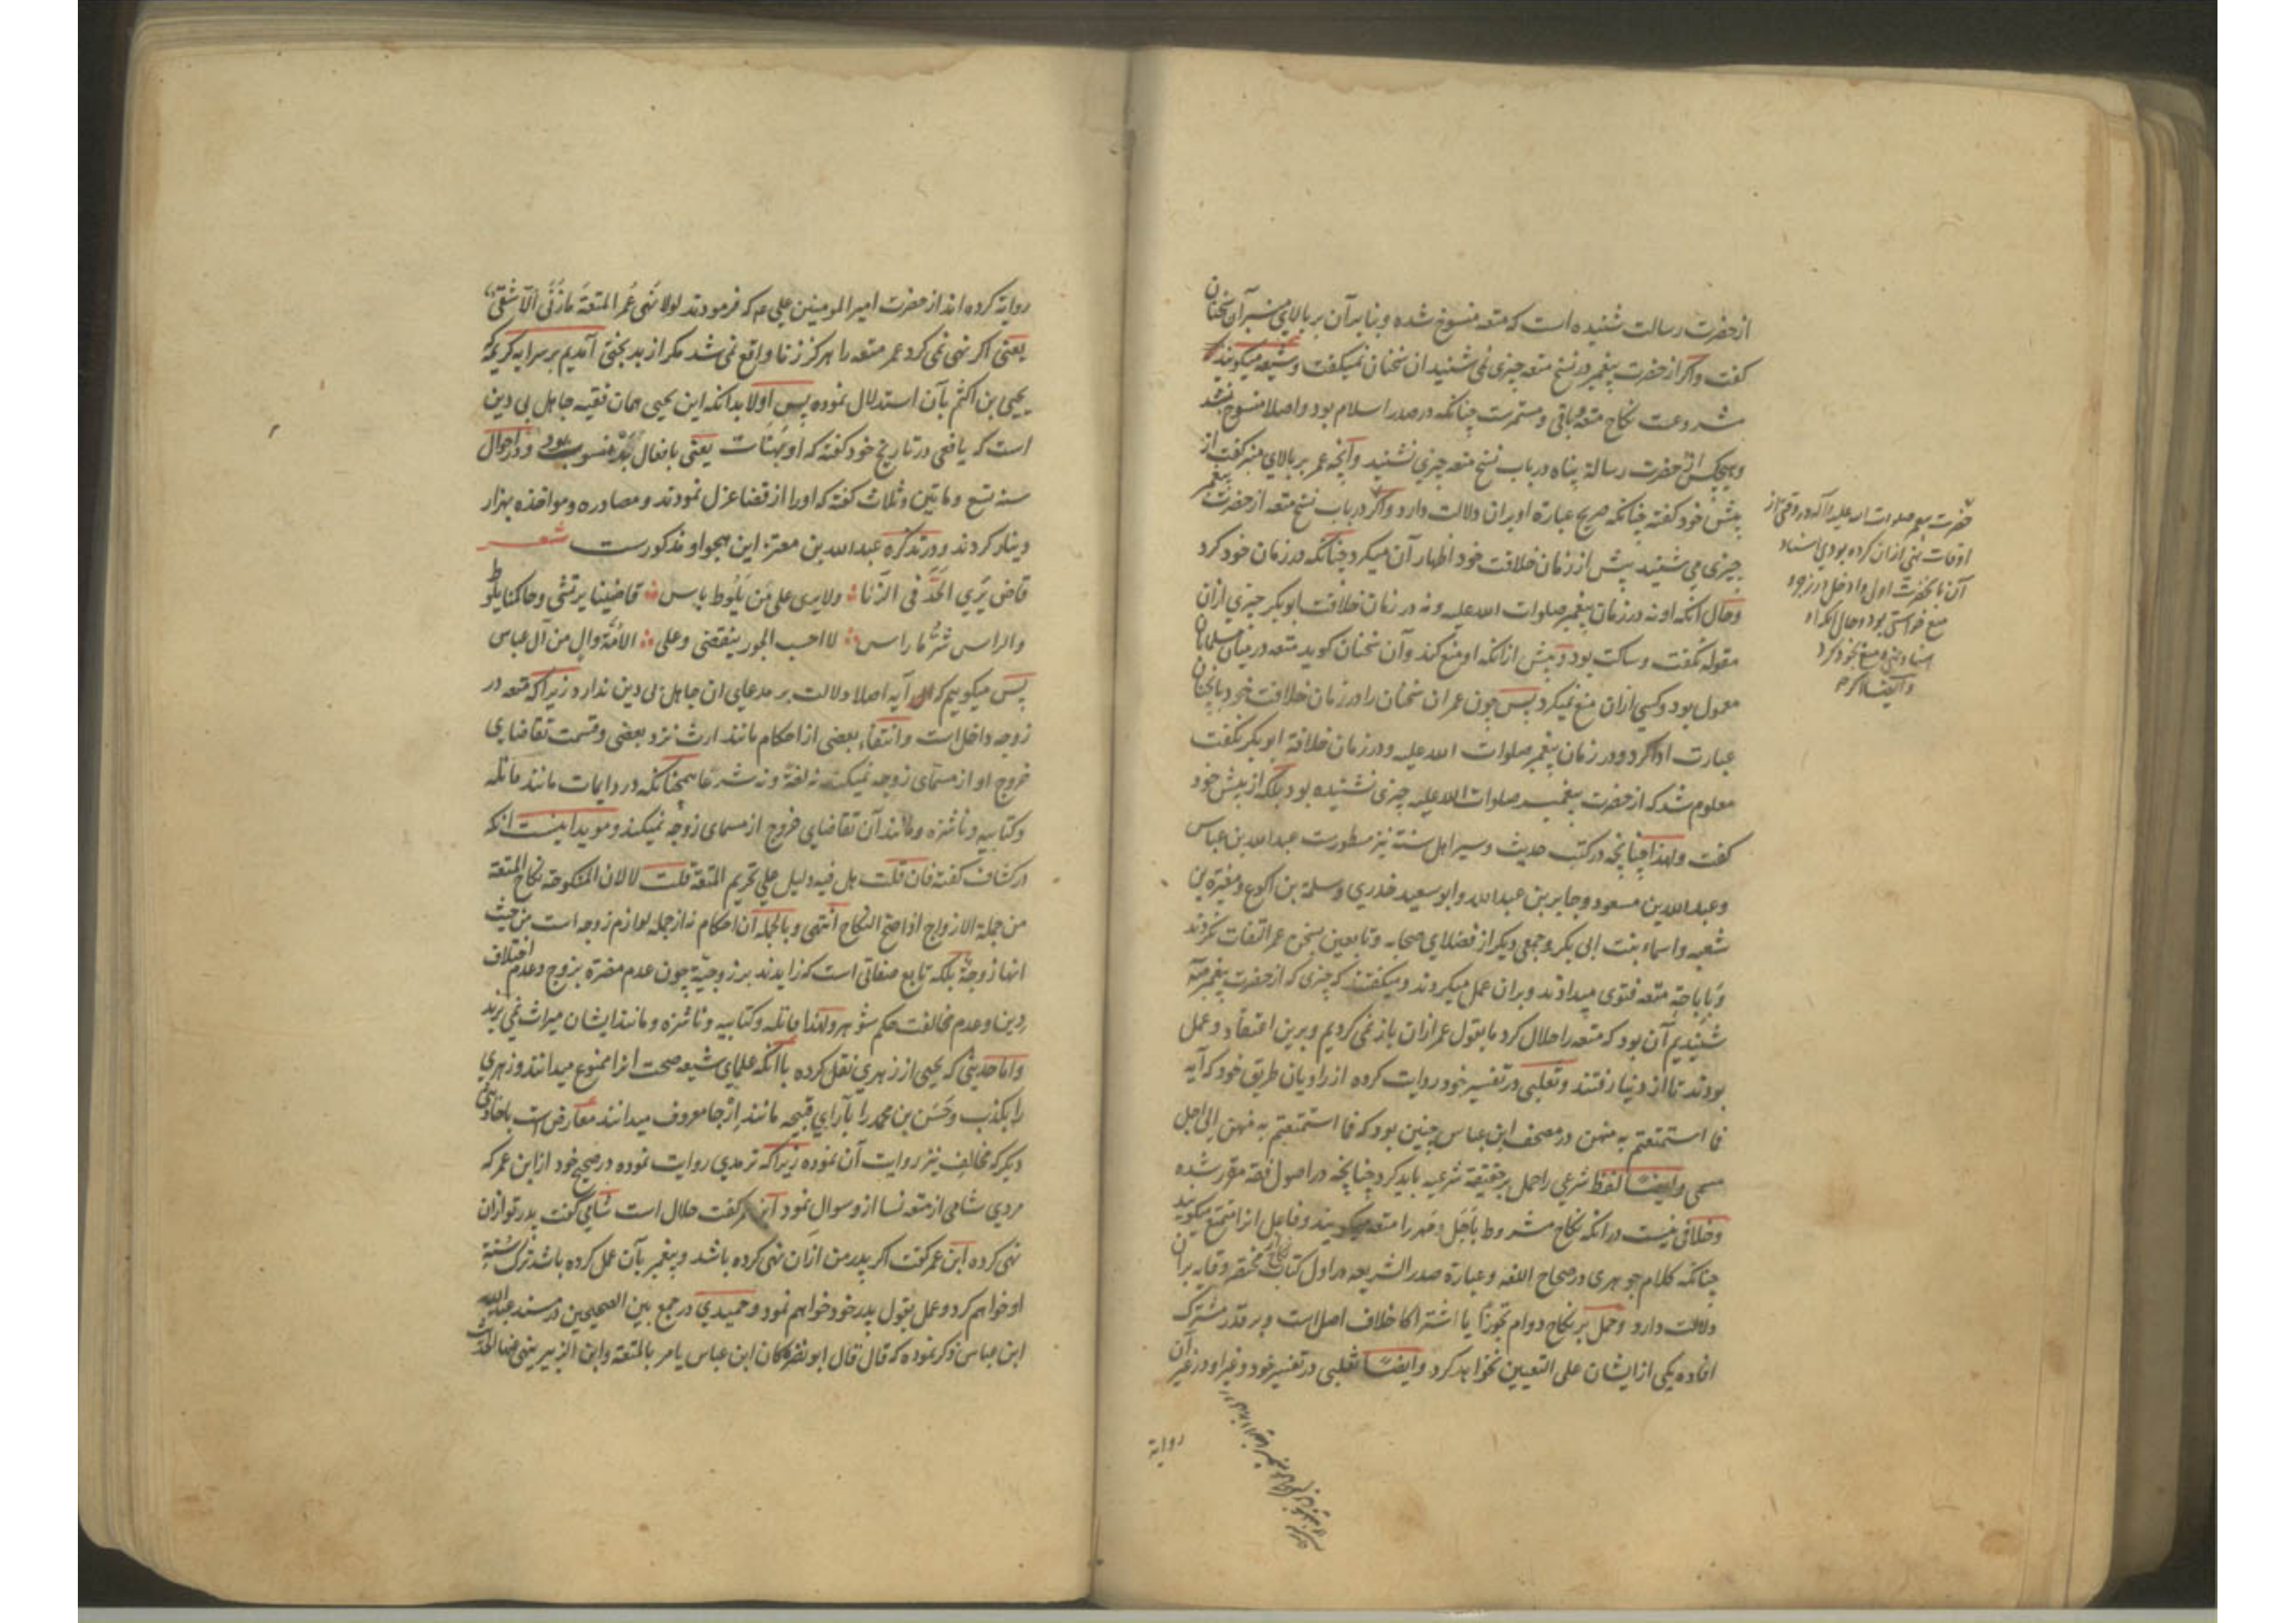 از حضرت رسالت شنیده است که متعه منسوخ شده و بنابر آن بر بالای منبر آن سخنان
کفت و اکر از حضرت پیغمبر در نسخ متعه چیزی نمی شنید ان سخنان نمیکفت و شیعه میکویند که
مشروعت نکاح متعه باقی و مستمرست چنانکه در صدر اسلام بود و اصلا منسوخ نشد
و هیچکس از حضرت رسالة پناه در باب نسخ متعه چیزی نشنید و آنچه عمر بر بالای منبر کفت از
پیش خود کفته چنانکه صریح عبارة او بران دلالت دارد و اکر در باب نسخ متعه از حضرت پیغمبر
چیزی می شنید پیش از زمان خلافت خود اظهار آن میکرد چنانکه در زمان خود کرد
و حال آنکه او نه در زمان پیغمبر صلوات الله علیه و نه در زمان خلافت ابو بکر چیزی ازان
مقوله نکفت و ساکت بود و پیش ازانکه او منع کند و آن سخنان کوید متعه در میان مسلمانان
معمول بود و کسی ازان منع نمیکرد پس چون عمر ان سخنان را در زمان خلافت خود بانچنان
عبارت ادا کرد و در زمان پیغمبر صلوات الله علیه و در زمان خلافة ابو بکر نکفت
معلوم شد که از حضرت پیغمبر صلوات الله علیه چیزی نشنیده بود بلکه از پیش خود
کفت و لهذا چنانچه در کتب حدیث و سیر اهل سنة نیز مسطورست عبدالله بن عباس
و عبدالله بن مسعود و جابر بن عبدالله و ابو سعید خدری و سلمة بن اکوع و مغیرة بن
شعبه و اسماء بنت ابی بکر و جمعی دیکر از فضلای صحابه و تابعین بسخن عمر التفات نکردند
و باباحة متعه فتوی میدادند و بران عمل میکردند و میکفتند که چیزی که از حضرت پیغمبر
شنیدیم آن بود که متعه را حلال کرد ما بقول عمر ازان باز نمی کردیم و برین اعتقاد و عمل
بودند تا از دنیا رفتند و ثعلبی در تفسیر خود روایت کرده از راویان طریق خود که آیه
فما استمتعتم به منهن در مصحف ابن عباس چنین بود که فما استمتعتم به منهن الی اجل
مسمی و ایضا لفظ شرعی را حمل بر حقیقة شرعیه باید کرد چنانچه در اصول فقه مقرر شده
و خلافی نیست در آنکه نکاح مشروط باجل و مهر را متعه میکویند و فاعل انرا متمتع میکویند
چنانکه کلام جوهری در صحاح اللغه و عبارة صدر الشریعه در اول کتاب نکاح مختصر وقایه بران
دلالت دارد و حمل بر نکاح دوام تجوزا یا اشتراکا خلاف اصل است و بر قدر مشترک
افاده یکی از ایشان علی التعیین نخواهد کرد و ایضا ثعلبی در تفسیر خود و غیر او در غیر آن
روایة
حضرت پیغمبر صلوات الله علیه و آله در وقتی از
اوقات نهی ازان کرده بودی اسناد
آن بانحضرت اول و ادخل در زجر و
منع خواستی بود و حال آنکه او
اسناد نهی و منع بخود کرد
روایة کرده اند از حضرت امیر المومنین علی م که فرمودند لولا نهی عمر المتعة ما زنی الا شقی
یعنی اکر نهی نمی کرد عمر متعه را هرکز زنا واقع نمی شد مکر از بدبختی آمدیم بر سر آیه کریمه که
یحیی بن اکثم بآن استدلال نموده پس اولا بدانکه این یحیی همان فقیه جاهل بی دین
است که یافعی در تاریخ خود کفته که او بهنات یعنی بافعال بد منسوب بود و در احوال
سنه تسع و ماتین و ثلاث کفته که اورا از قضا عزل نمودند و مصادره و مواخذه بهزار
دینار کردند و در تذکره عبدالله بن معتز این هجو او مذکورست شعر
قاض یری الحد فی الزنا ولا یری علی من یلوط باس قاضینا یرتشی و حاکمنا یلوط
والراس شر ما راس لا احسب الجور ینقضی وعلی الامة وال من آل عباس
پس میکوییم که ان آیه اصلا دلالت بر مدعای ان جاهل بی دین ندارد زیرا که متعه در
زوجه داخل است و انتفاء بعضی از احکام مانند ارث نزد بعضی و قسمت تقاضای
خروج او از مسمای زوجه نمیکند نه لغة و نه شرعا همچنانکه در روایات مانند قاتله
و کتابیه و ناشزه و مانند آن تقاضای خروج از مسمای زوجه نمیکند و موید اینست انکه
در کشاف کفته فان قلت هل فیه دلیل علی تحریم المتعة قلت لا لان المنکوحة نکاح المتعة
من جملة الازواج اذا صح النکاح انتهی و بالجمله آن احکام نه از جمله لوازم زوجه است من حیث
انها زوجة بلکه تابع صفاتی است که زایدند بر زوجیة چون عدم مضرة بزوج و عدم اختلاف
دین و عدم مخالفت حکم شوهر و لهذا قاتله و کتابیه و ناشزه و مانند ایشان میراث نمی برند
و اما حدیثی که یحیی از زهری نقل کرده باآنکه علمای شیعه صحت انرا ممنوع میدانند و زهری
را بکذب و حسن بن محمد را بآرای قبیحه مانند ارجا معروف میدانند معارض است باحادیث
دیکر که مخالف نیز روایت آن نموده زیرا که ترمدی روایت نموده در صحیح خود از ابن عمر که
مردی شامی از متعه نسا ازو سوال نمود ابن عمر کفت حلال است شامی کفت پدر تو ازان
نهی کرده ابن عمر کفت اکر پدر من ازان نهی کرده باشد و پیغمبر بآن عمل کرده باشد ترک سنة
او خواهم کرد و عمل بقول پدر خود خواهم نمود و حمیدی در جمع بین الصحیحین در مسند عبدالله
ابن عباس ذکر نموده که قال قال ابو نضره کان ابن عباس یامر بالمتعة وابن الزبیر ینهی عنها